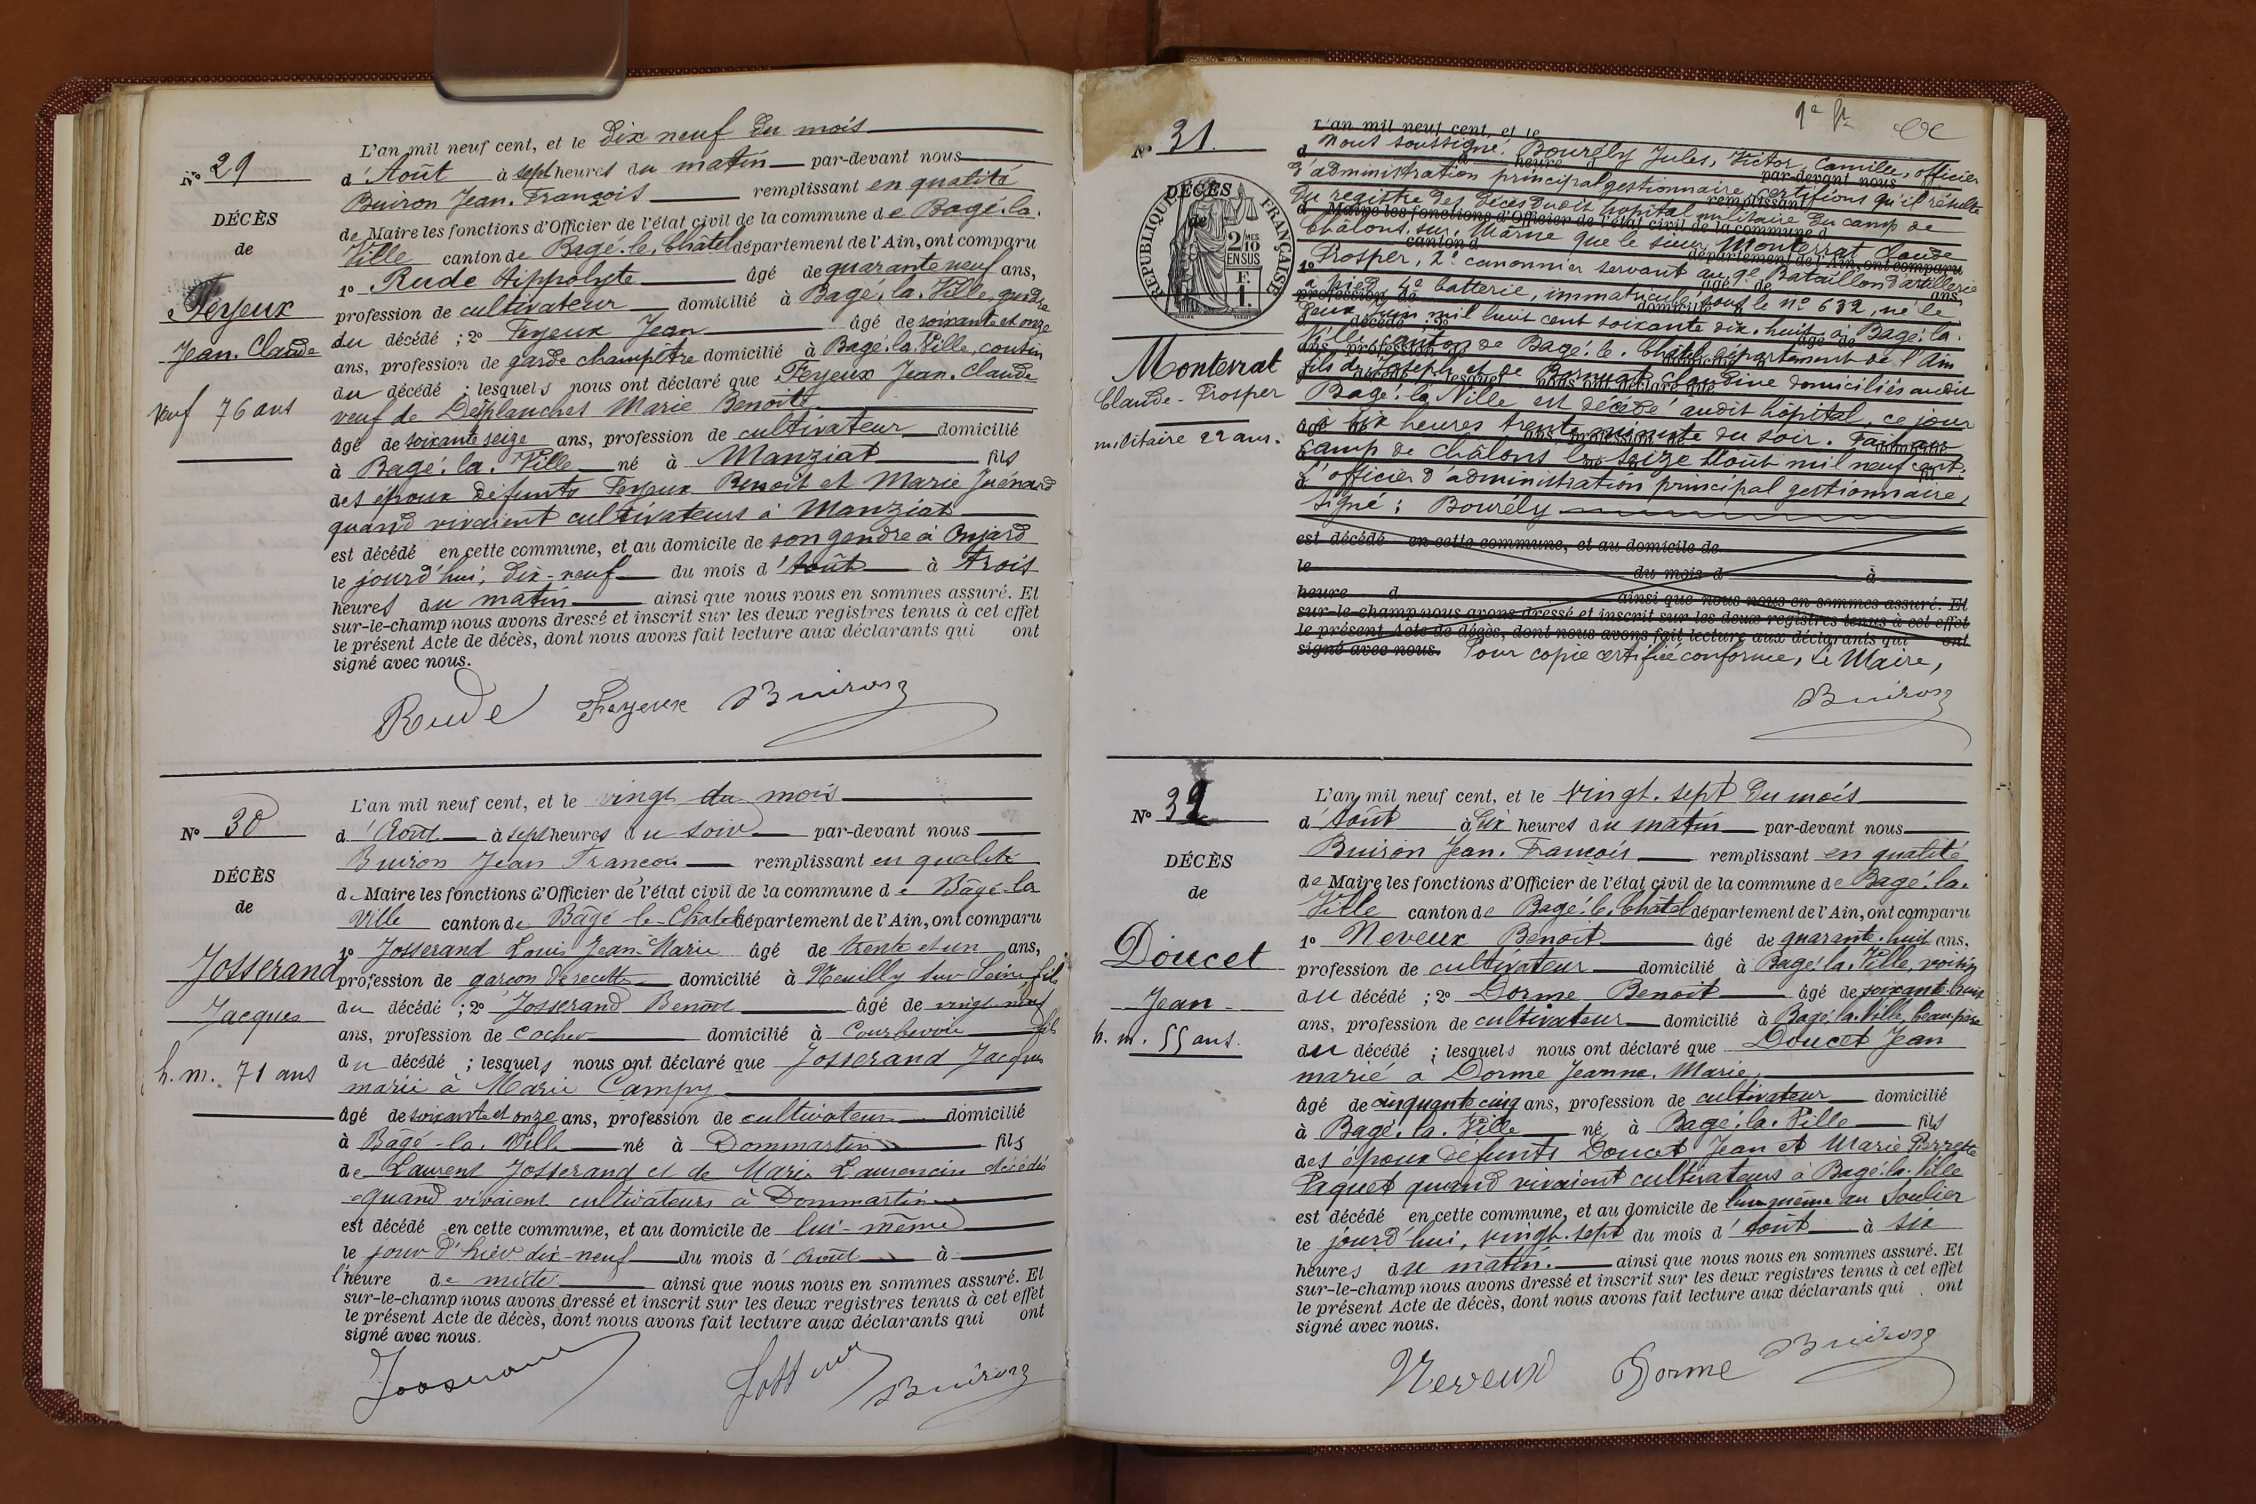 L'an mil neuf cent, et le dix neuf du mois
d'Août à sept heures du matin par-devant nous
Buiron Jean-François remplissant en qualité
de Maire les fonctions d'Officier de l'état civil de la commune de Bagé-la-
Ville canton de Bagé-le-Châtel département de l'Ain, ont comparu
1º Rude Hippolyte âgé de quarante neuf ans,
profession de cultivateur domicilié à Bagé-la-Ville, gendre
du décédé ; 2º Feyeux Jean âgé de soixante et onze
ans, profession de garde champêtre domicilié à Bagé-la-Ville, cousin
du décédé ; lesquels nous ont déclaré que Feyeux Jean-Claude
veuf de Desplanches Marie Benoîte
âgé de soixante seize ans, profession de cultivateur domicilié
à Bagé-la-Ville né à Manziat fils
des époux défunts Feyeux Benoît et Marie Guénard
quand vivaient cultivateurs à Manziat
est décédé en cette commune, et au domicile de son gendre à Onjard
le jourd'hui, dix-neuf du mois d'Août à trois
heures du matin ainsi que nous nous en sommes assuré. Et
sur-le-champ nous avons dressé et inscrit sur les deux registres tenus à cet effet
le présent Acte de décès, dont nous avons fait lecture aux déclarants qui ont
signé avec nous.
Rude Feyeux Buiron
Nº 29
DÉCÈS
de
Feyeux
Jean-Claude
veuf 76 ans
L'an mil neuf cent, et le vingt du mois
d'Août à sept heures du soir par-devant nous
Buiron Jean François remplissant en qualité
de Maire les fonctions d'Officier de l'état civil de la commune de Bâgé-la
Ville canton de Bâgé-le-Châtel département de l'Ain, ont comparu
1º Josserand Louis Jean-Marie âgé de trente et un ans,
profession de garçon de recette domicilié à Neuilly sur Seine, fils
du décédé ; 2º Josserand Benoît âgé de vingt neuf
ans, profession de cocher domicilié à Courbevoie fils
du décédé ; lesquels nous ont déclaré que Josserand Jacques
marié à Marie Campy
âgé de soixante et onze ans, profession de cultivateur domicilié
à Bâgé-la-Ville né à Dommartin fils
de Laurent Josserand et de Marie Laurencin décédés
quand vivaient cultivateurs à Dommartin
est décédé en cette commune, et au domicile de lui-même
le jour d'hier dix-neuf du mois d'Août à
l'heure de midi ainsi que nous nous en sommes assuré. Et
sur-le-champ nous avons dressé et inscrit sur les deux registres tenus à cet effet
le présent Acte de décès, dont nous avons fait lecture aux déclarants qui ont
signé avec nous.
Josserand Josserand Buiron
Nº 30
DÉCÈS
de
Josserand
Jacques
h. m. 71 ans
Nº 31.
DÉCÈS
de
RÉPUBLIQUE FRANÇAISE
2 MES
10
EN SUS
1 F.
Monterrat
Claude-Prosper
militaire 22 ans.
L'an mil neuf cent, et le
Nous soussigné Bourély Jules, Victor, Camille, officier
d à heure d par-devant nous
d'administration principal gestionnaire, certifions qu'il résulte
remplissant
du registre des décès dudit hôpital militaire du camp de
d Maire les fonctions d'Officier de l'état civil de la commune d
Châlons-sur-Marne que le sieur Monterrat Claude
canton d département de l'Ain, ont comparu
Prosper, 2e canonnier servant au 9e Bataillon d'artillerie
1º âgé de ans,
à pied, 4e batterie, immatriculé sous le nº 632, né le
profession de domicilié à
deux juin mil huit cent soixante dix-huit à Bagé-la-
décédé ; 2º âgé de
Ville, canton de Bagé-le-Châtel, département de l'Ain
ans, profession de domicilié à
fils de Joseph et de Bornuat Claudine domiciliés audit
décédé ; lesquel nous ont déclaré que
Bagé-la-Ville est décédé audit hôpital, ce jour
à six heures trente minutes du soir. Fait au
âgé de ans, profession de domicilié
camp de Châlons le seize Août mil neuf cent.
L'officier d'administration principal gestionnaire,
signé : Bourély
est décédé en cette commune, et au domicile de
le du mois d à
heure d ainsi que nous nous en sommes assuré. Et
sur-le-champ nous avons dressé et inscrit sur les deux registres tenus à cet effet
le présent Acte de décès, dont nous avons fait lecture aux déclarants qui ont
signé avec nous. Pour copie certifiée conforme, Le Maire,
Buiron
Nº 32
DÉCÈS
de
Doucet
Jean
h. m. 55 ans.
L'an mil neuf cent, et le vingt-sept du mois
d'Août à dix heures du matin par-devant nous
Buiron Jean-François remplissant en qualité
de Maire les fonctions d'Officier de l'état civil de la commune de Bagé-la-
Ville canton de Bagé-le-Châtel département de l'Ain, ont comparu
1º Neveux Benoît âgé de quarante-huit ans,
profession de cultivateur domicilié à Bagé-la-Ville, voisin
du décédé ; 2º Dorme Benoit âgé de soixante-huit
ans, profession de cultivateur domicilié à Bagé-la-Ville, beau-père
du décédé ; lesquels nous ont déclaré que Doucet Jean
marié à Dorme Jeanne-Marie,
âgé de cinquante cinq ans, profession de cultivateur domicilié
à Bagé-la-Ville né à Bagé-la-Ville fils
des époux défunts Doucet Jean et Marie Pierrette
Paquet quand vivaient cultivateurs à Bagé-la-Ville
est décédé en cette commune, et au domicile de lui-même au Soulier
le jourd'hui, vingt-sept du mois d'Août à six
heures du matin. ainsi que nous nous en sommes assuré. Et
sur-le-champ nous avons dressé et inscrit sur les deux registres tenus à cet effet
le présent Acte de décès, dont nous avons fait lecture aux déclarants qui ont
signé avec nous.
Neveux Dorme Buiron